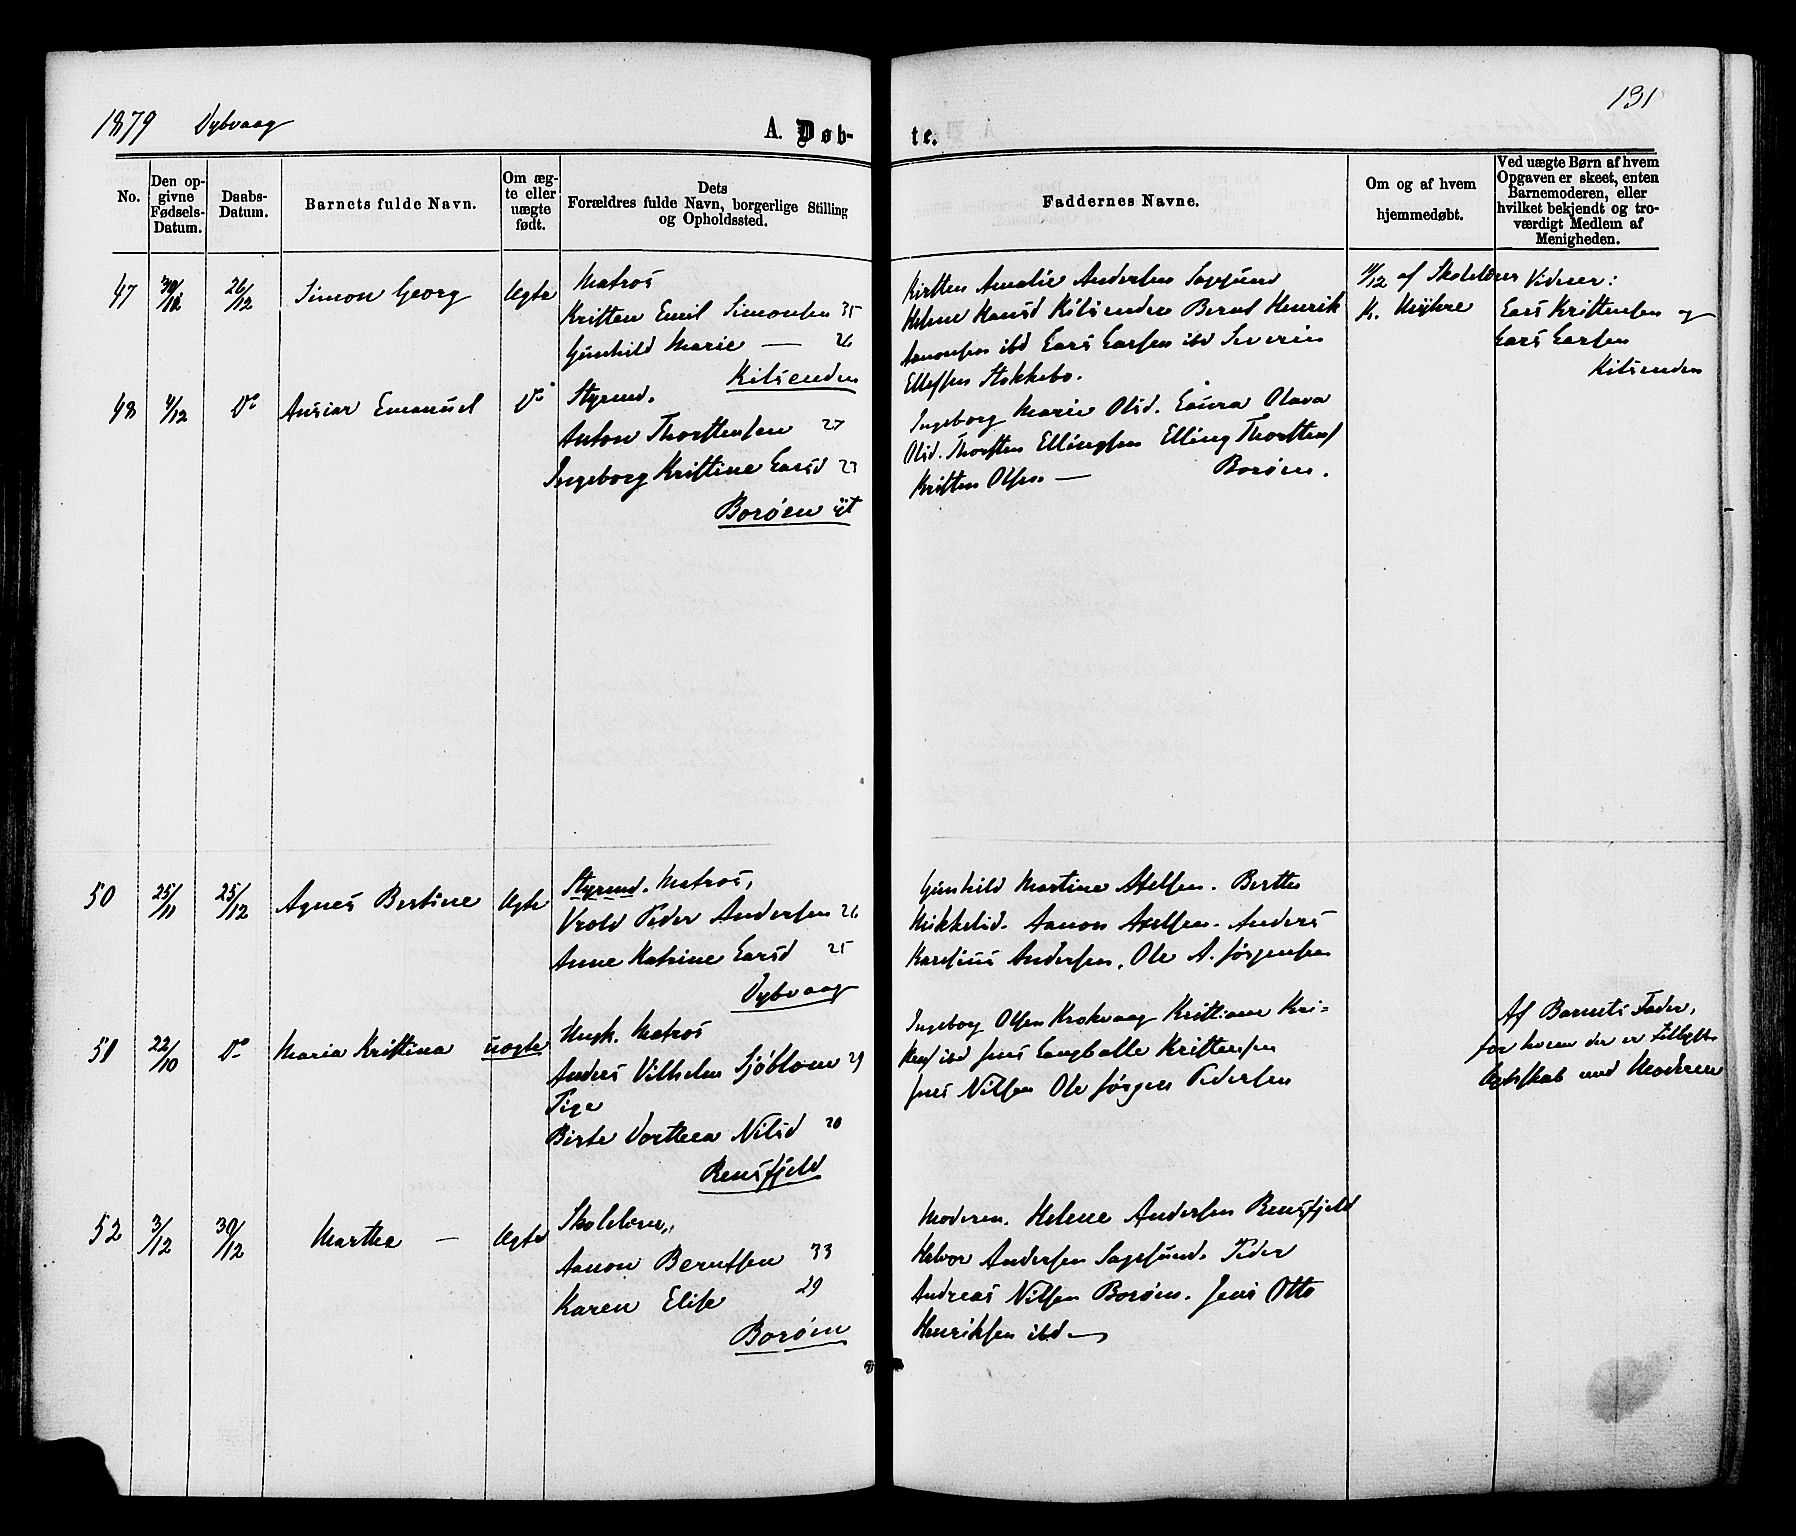 1879 Dybvaag
A. Døb-
te.
131
No.
Den op-
givne
Fødsels-
Datum.
Daabs-
Datum.
Barnets fulde Navn.
Om æg-
te eller
uægte
født.
Dets
Forældres fulde Navn, borgerlige Stilling
og Opholdssted.
Faddernes Navne.
Om og af hvem
hjemmedøbt.
Ved uægte Børn af hvem
Opgaven er skeet, enten
Barnemoderen, eller
hvilket bekjendt og tro-
værdigt Medlem af
Menigheden.
47 26/12 Simon Georg Ægte
Matros
Kristen Emil Simonsen 35
Gunhild Marie — 26
Kilsenden
Kirsten Amalie Andersen Sagesund
Helene Hansd Kilsenden Bernt Henrik
Aanonsen ibd Lars Larsen ibd Severin
Ellefsen Stokkebo.
af Skolelærer
K.
Vidner:
Lars Kristensen og
Lars Larsen
Kilsenden
48 4/12 Do Ansiar Emanuel Do
Styrmd.
Anton Thorstensen 27
Ingeborg Kristine Larsd 23
Borøen yt
Ingeborg Marie Olsd. Laura Olava
Olsd. Thorsten Ellingsen Elling Thorstens
Kristen Olsen. — Borøen.
50 25/11 25/12 Agnes Bertine Ægte
Styrmd. Matros,
Vrold Peder Andersen 26
Anne Katrine Larsd 25
Dybvaag
Gunhild Martine Axelsen. Berthe
Mikkelsd. Aanon Axelsen. Anders
Karelius Andersen. Ole A. Jørgensen
51 22/10 Do Maria Kristina uægte
Ungk. Matros
Anders Vilhelm Sjöblom 29
Pige
Birte Dorthea Nilsd 20
Rensfjeld
Ingeborg Olsen Krokvaag Kristiane Kri-
stens ibd Jens Langballe Kristensen
Jens Nilsen Ole Jørgen Pedersen
Af Barnets Fader,
for hvem der er tillyst
Ægteskab med Moderen
52 3/12 30/12 Marthea — Ægte
Skolelærer,
Aanon Berntsen 33
Karen Elise 29
Borøen
Moderen. Helene Andersen Rensfjeld
Halvor Andersen Sagesund. Peder
Andreas Nilsen Borøen. Jens Otto
Henriksen ibd —